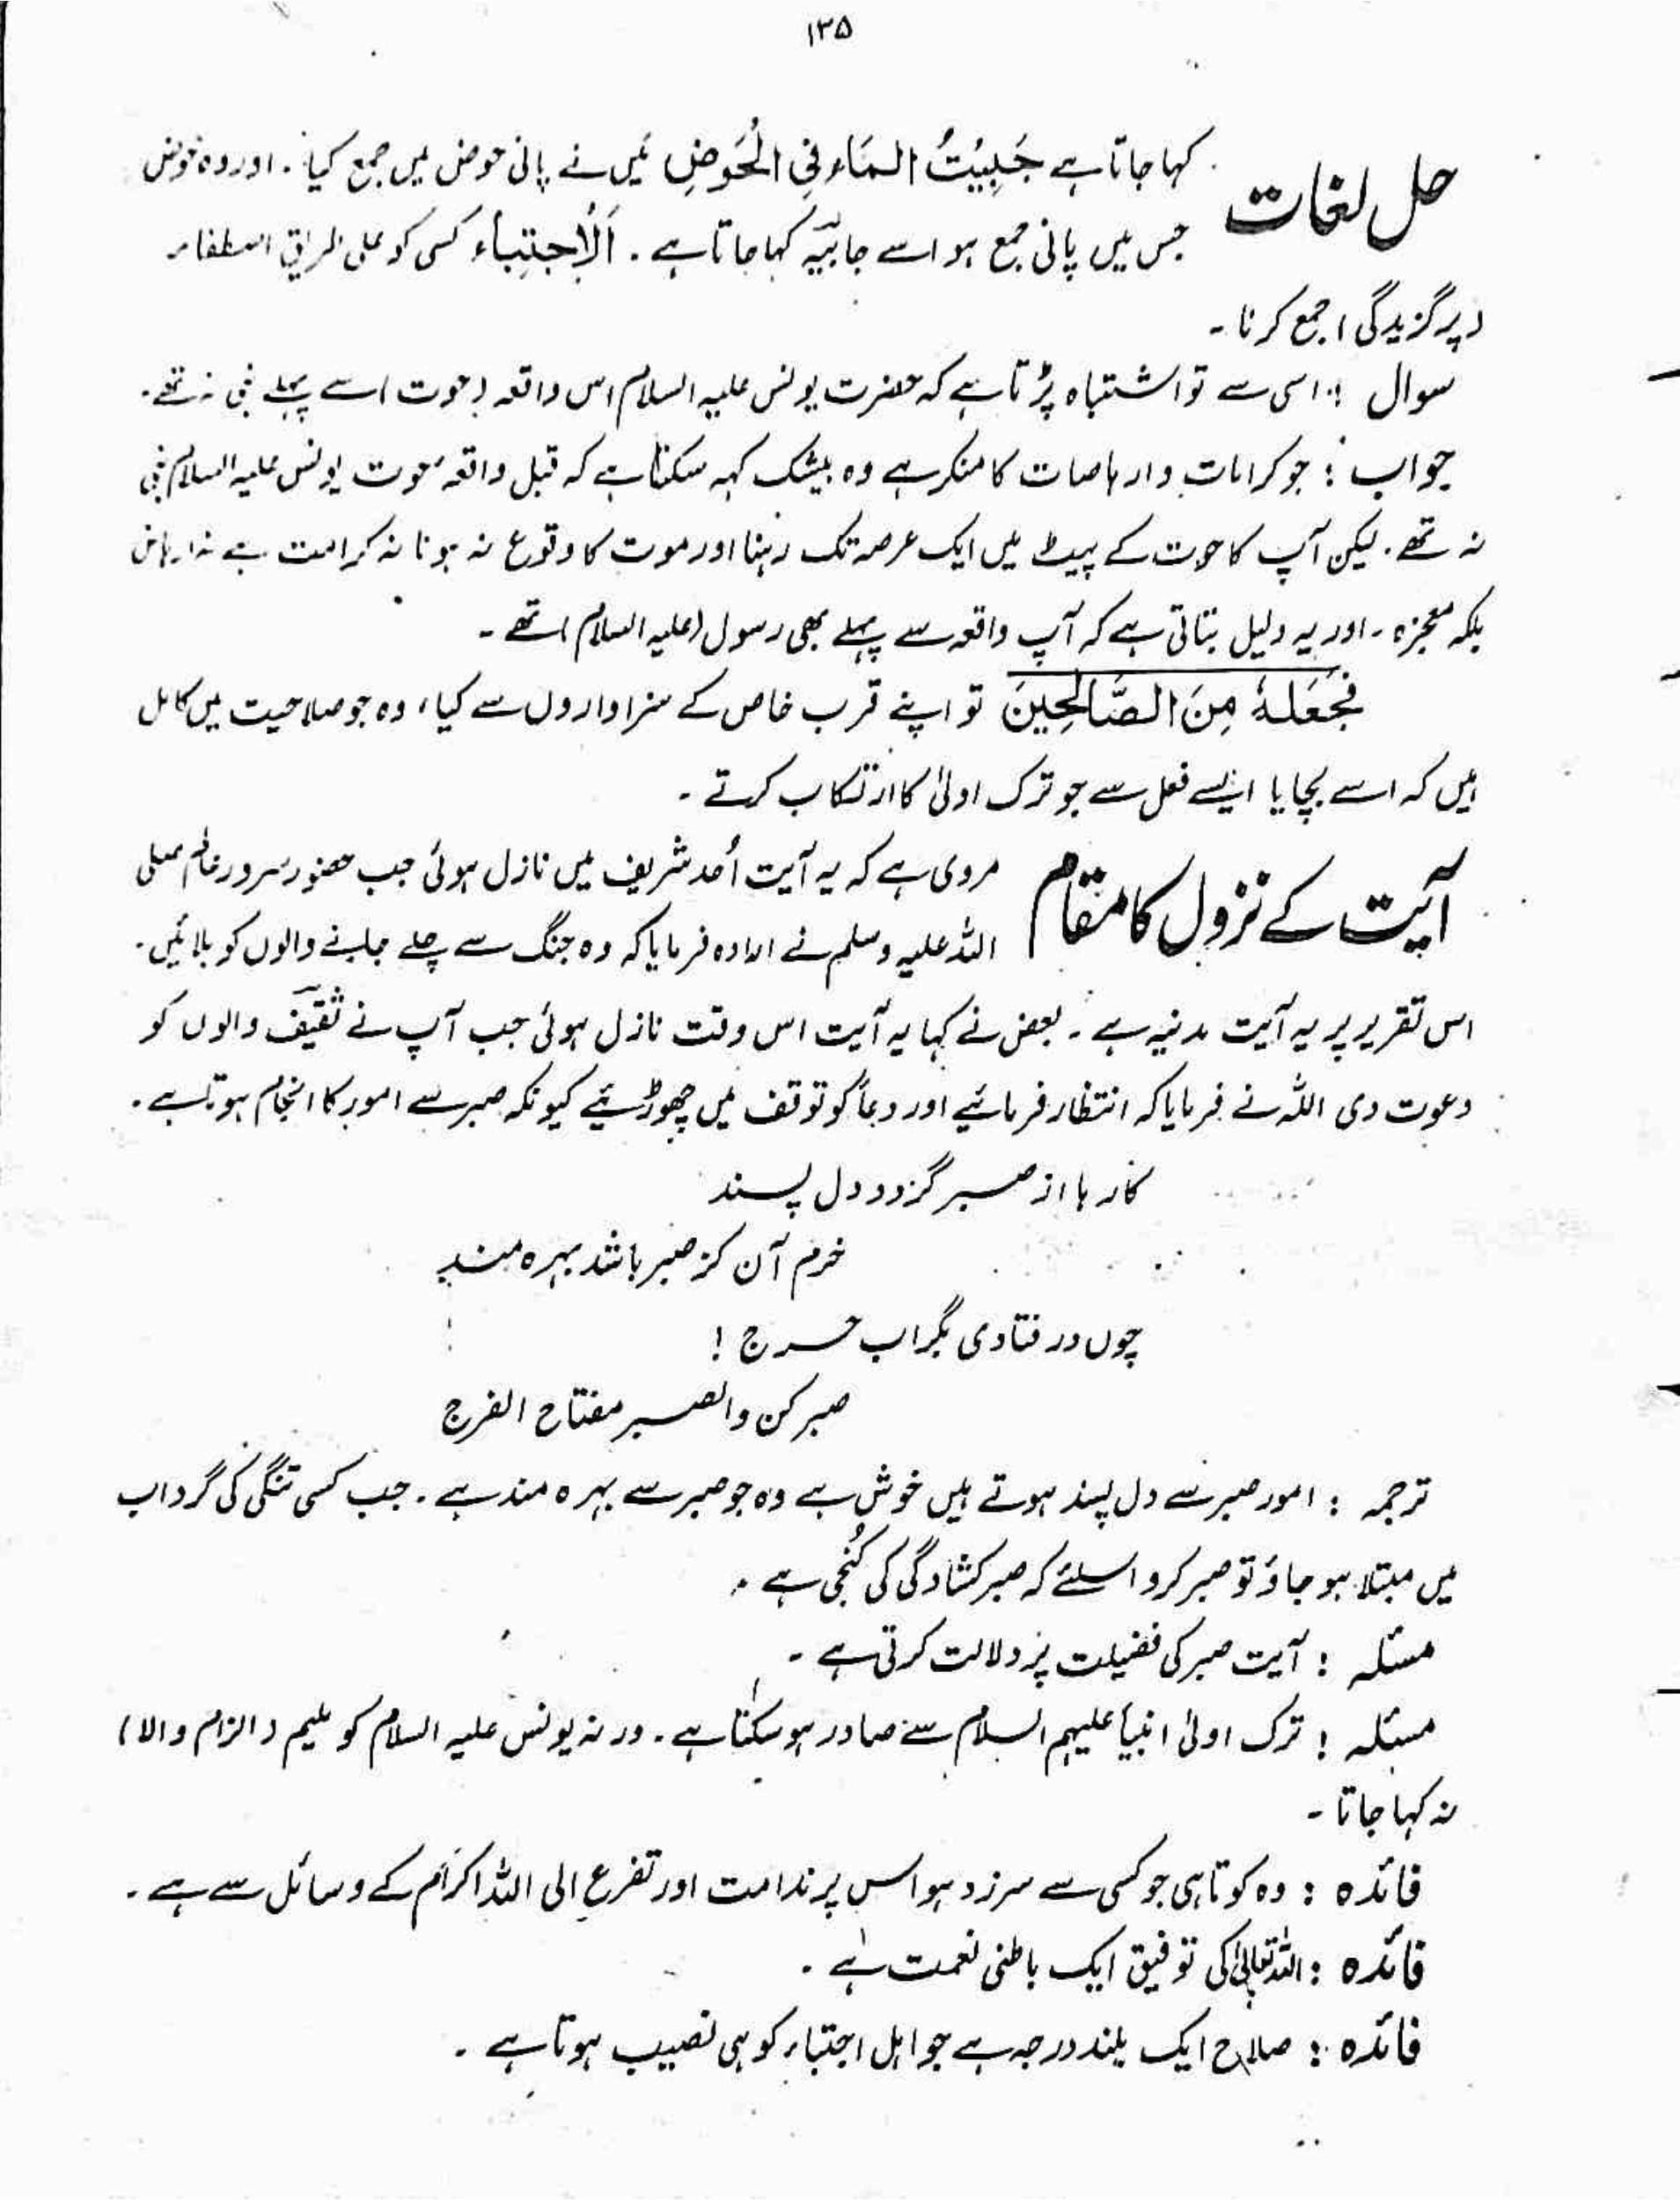 ۱۳۵
حل لغات
کہا جاتا ہے جَبِیْتُ المَاء فِی الْحَوضِ میں نے پانی حوض میں جمع کیا۔ اور وہ حوض
جس میں پانی جمع ہو اسے جابیہ کہا جاتا ہے۔ اَلْاِجتِباء کسی کو علی طریق اصطفاء
(برگزیدگی) جمع کرنا۔
سوال : اسی سے تو اشتباہ پڑتا ہے کہ حضرت یونس علیہ السلام اس واقعہ (حوت) سے پہلے نبی نہ تھے۔
جواب : جو کرامات وارہاصات کا منکر ہے وہ بیشک کہہ سکتا ہے کہ قبل واقعہ حوت یونس علیہ السلام نبی
نہ تھے۔ لیکن آپ کا حوت کے پیٹ میں ایک عرصہ تک رہنا اور موت کا وقوع نہ ہونا نہ کرامت ہے نہ ارہاص
بلکہ معجزہ۔ اور یہ دلیل بتاتی ہے کہ آپ واقعہ سے پہلے بھی رسول (علیہ السلام) تھے۔
فَجَعَلَهٗ مِنَ الصَّالِحِیْنَ تو اپنے قرب خاص کے سزاواروں سے کیا، وہ جو صلاحیت میں کامل
ہیں کہ اسے بچایا ایسے فعل سے جو ترک اولیٰ کا ارتکاب کرتے۔
آیت کے نزول کا مقام
مروی ہے کہ یہ آیت اُحد شریف میں نازل ہوئی جب حضور سرور عالم صلی
اللہ علیہ وسلم نے ارادہ فرمایا کہ وہ جنگ سے چلے جانے والوں کو بلائیں۔
اس تقریر پر یہ آیت مدنیہ ہے۔ بعض نے کہا یہ آیت اس وقت نازل ہوئی جب آپ نے ثقیف والوں کو
دعوت دی اللہ نے فرمایا کہ انتظار فرمائیے اور دعا کو توقف میں چھوڑئیے کیونکہ صبر سے امور کا انجام ہوتا ہے۔
کارہا از صبر گردد دل پسند
خرم آن کز صبر باشد بہرہ مند
چوں در فتادی بگرداب حرج !
صبر کن والصبر مفتاح الفرج
ترجمہ : امور صبر سے دل پسند ہوتے ہیں خوش ہے وہ جو صبر سے بہرہ مند ہے۔ جب کسی تنگی کی گرداب
میں مبتلا ہو جاؤ تو صبر کرو اسلئے کہ صبر کشادگی کی کُنجی ہے۔
مسئلہ : آیت صبر کی فضیلت پر دلالت کرتی ہے۔
مسئلہ : ترک اولیٰ انبیاء علیہم السلام سے صادر ہو سکتا ہے۔ ورنہ یونس علیہ السلام کو ملیم (الزام والا)
نہ کہا جاتا۔
فائدہ : وہ کوتاہی جو کسی سے سرزد ہو اس پر ندامت اور تضرع الی اللہ اکرام کے وسائل سے ہے۔
فائدہ : اللہ تعالیٰ کی توفیق ایک باطنی نعمت ہے۔
فائدہ : صلاح ایک بلند درجہ ہے جو اہل اجتباء کو ہی نصیب ہوتا ہے۔